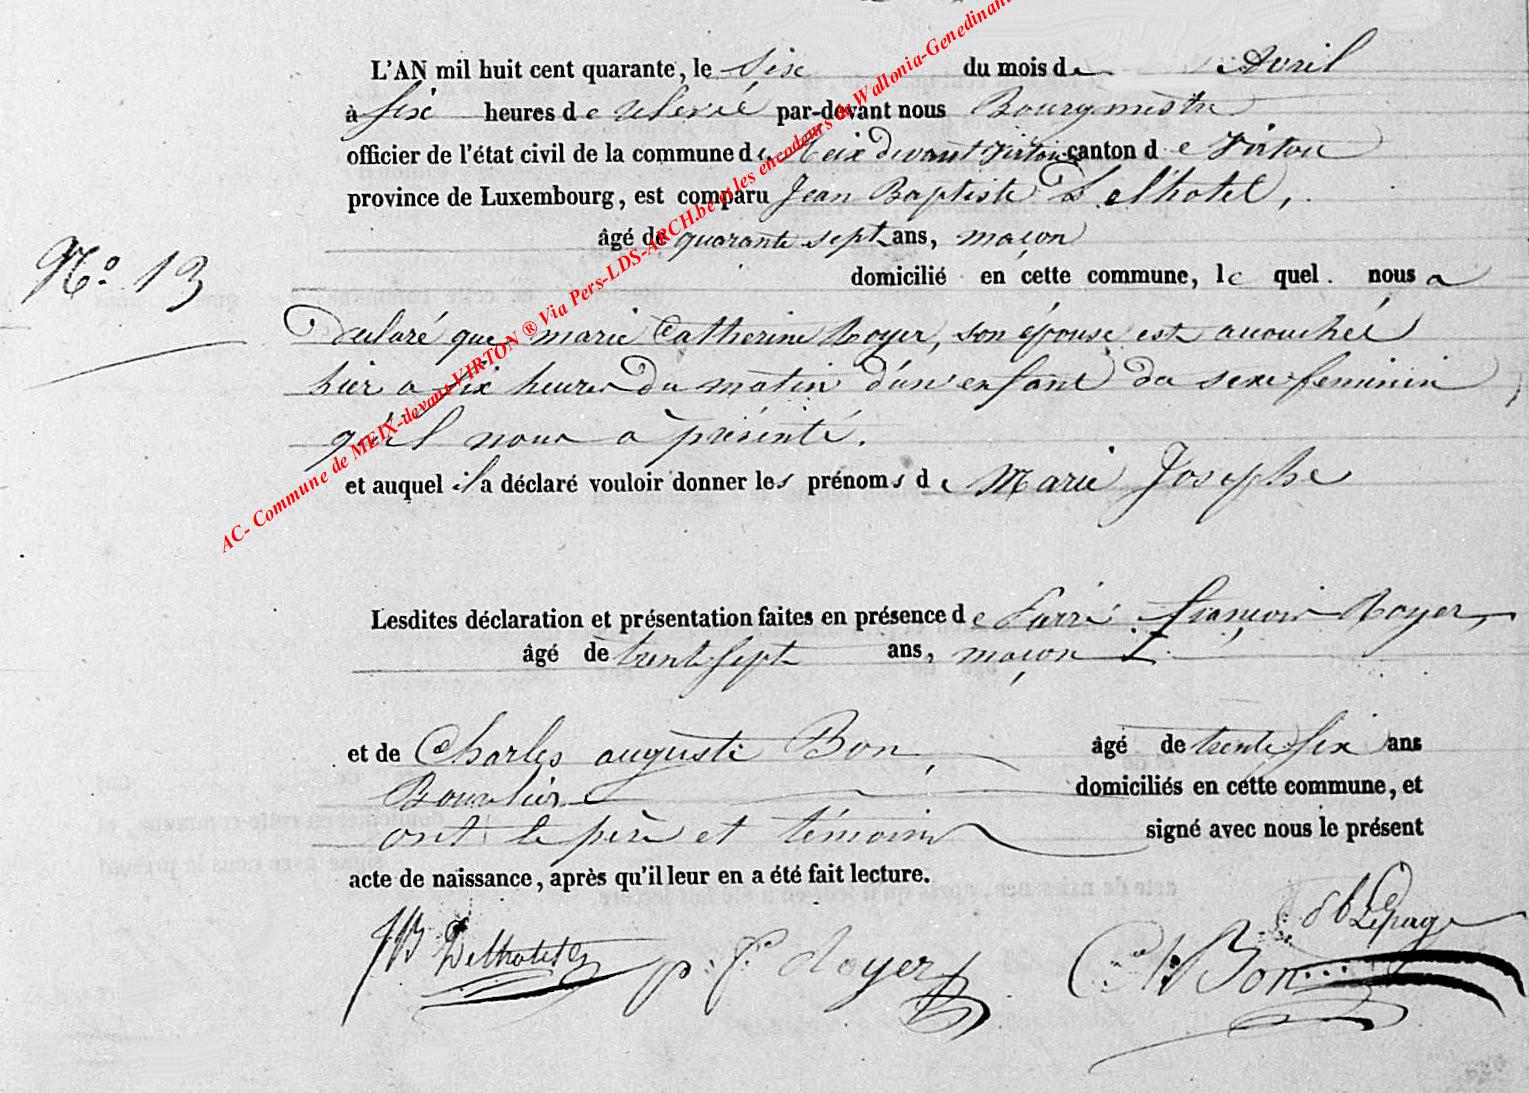 L'AN mil huit cent quarante, le six du mois de Avril
à six heures de relevé par-devant nous Bourgmestre
officier de l'état civil de la commune de Meix devant Virton canton de Virton
province de Luxembourg, est comparu Jean Baptiste Delhotel,
âgé de quarante sept ans, maçon
N.° 13
domicilié en cette commune, lequel nous a
Déclaré que marie Catherine Royer, son épouse est accouchée
hier a six heures Du matin d'un enfant du sexe feminin
qu'il nous a présenté.
et auquel il a déclaré vouloir donner les prénoms de Marie Josephe
Lesdites déclaration et présentation faites en présence de Pierre françois Royer,
âgé de trente sept ans, maçon
et de Charles auguste Bon, âgé de trente six ans
Bourlier domiciliés en cette commune, et
ont le père et témoins signé avec nous le présent
acte de naissance, après qu'il leur en a été fait lecture.
JB Delhotel p. f. Royer C A Bon Lepage
AC- Commune de MEIX-devant VIRTON ® Via Pers-LDS-ARCH.be et les encodeurs de Wallonia-Genedinant